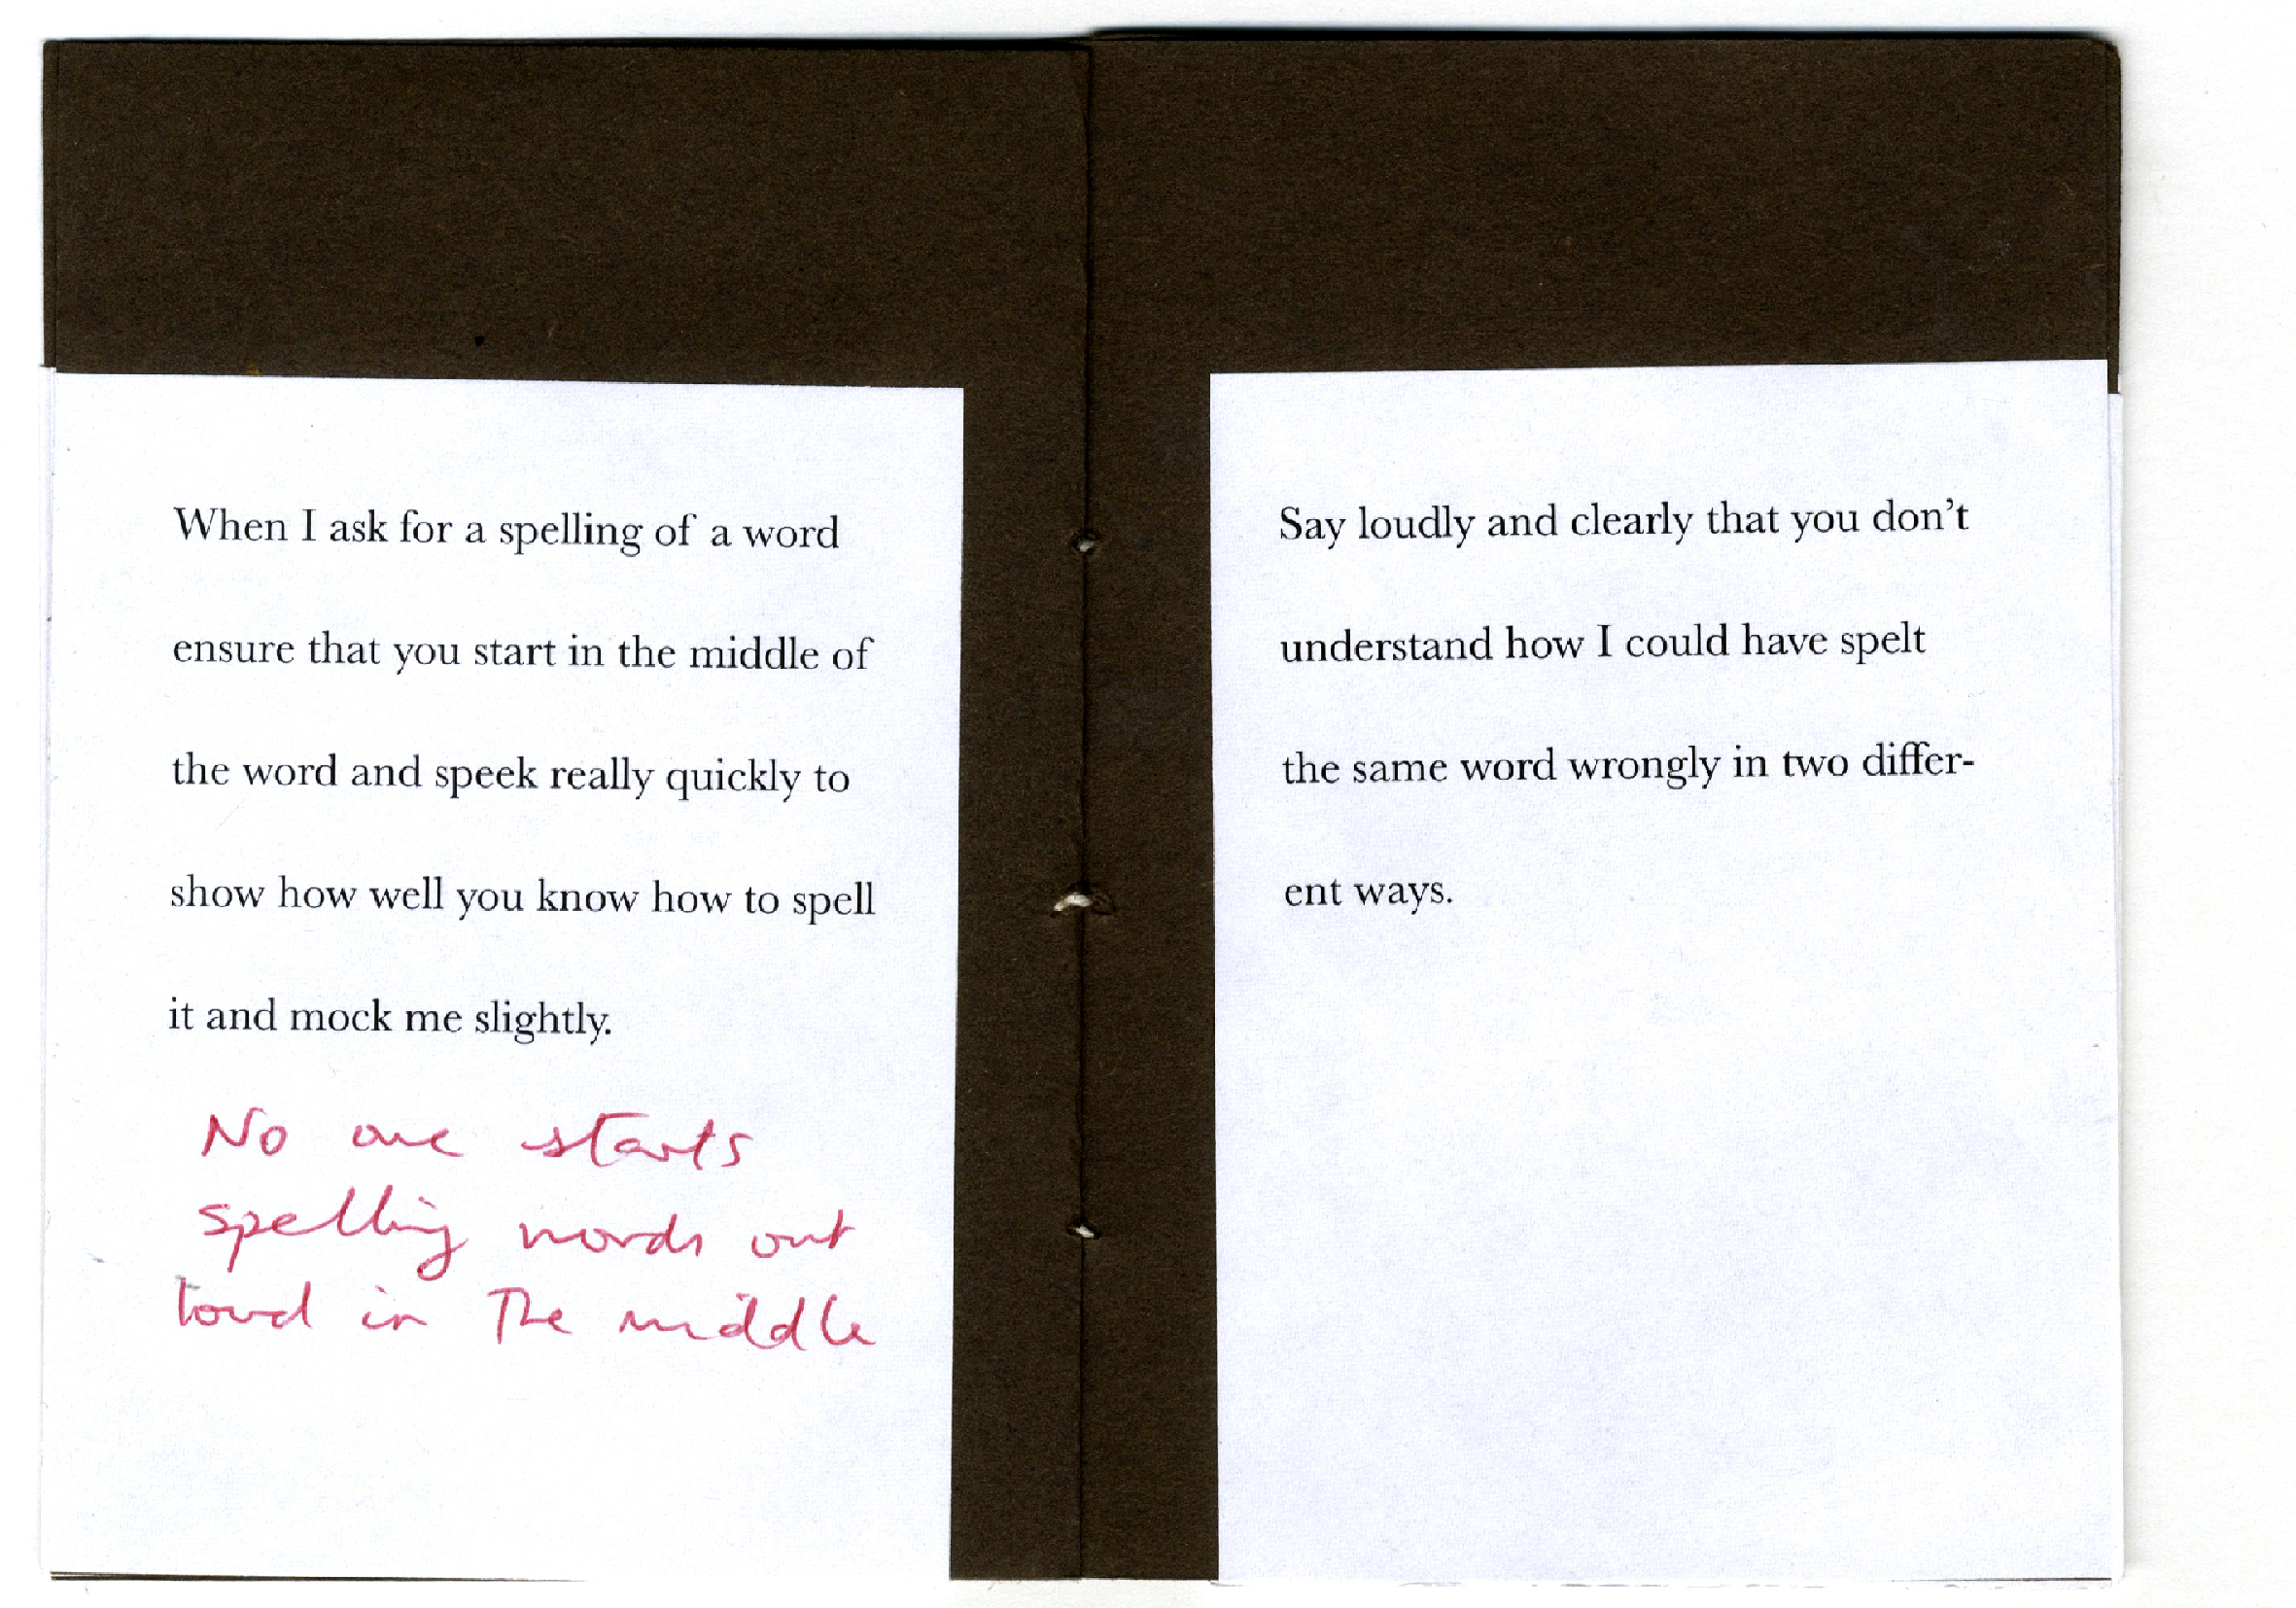 When I ask for a spelling of a word
ensure that you start in the middle of
the word and speek really quickly to
show how well you know how to spell
it and mock me slightly.
No one starts
spelling words out
loud in The middle
Say loudly and clearly that you don't
understand how I could have spelt
the same word wrongly in two differ-
ent ways.